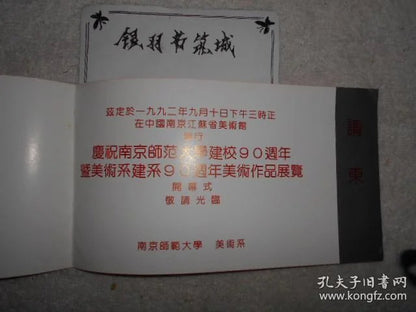 银羽苦筑城
茲定於一九九二年九月十日下午三時正
在中國南京江蘇省美術館
舉行
慶祝南京師范大學建校90週年
暨美術系建系90週年美術作品展覽
開幕式
敬請光臨
南京師範大學 美術系
請柬
孔夫子旧书网
www.kongfz.com